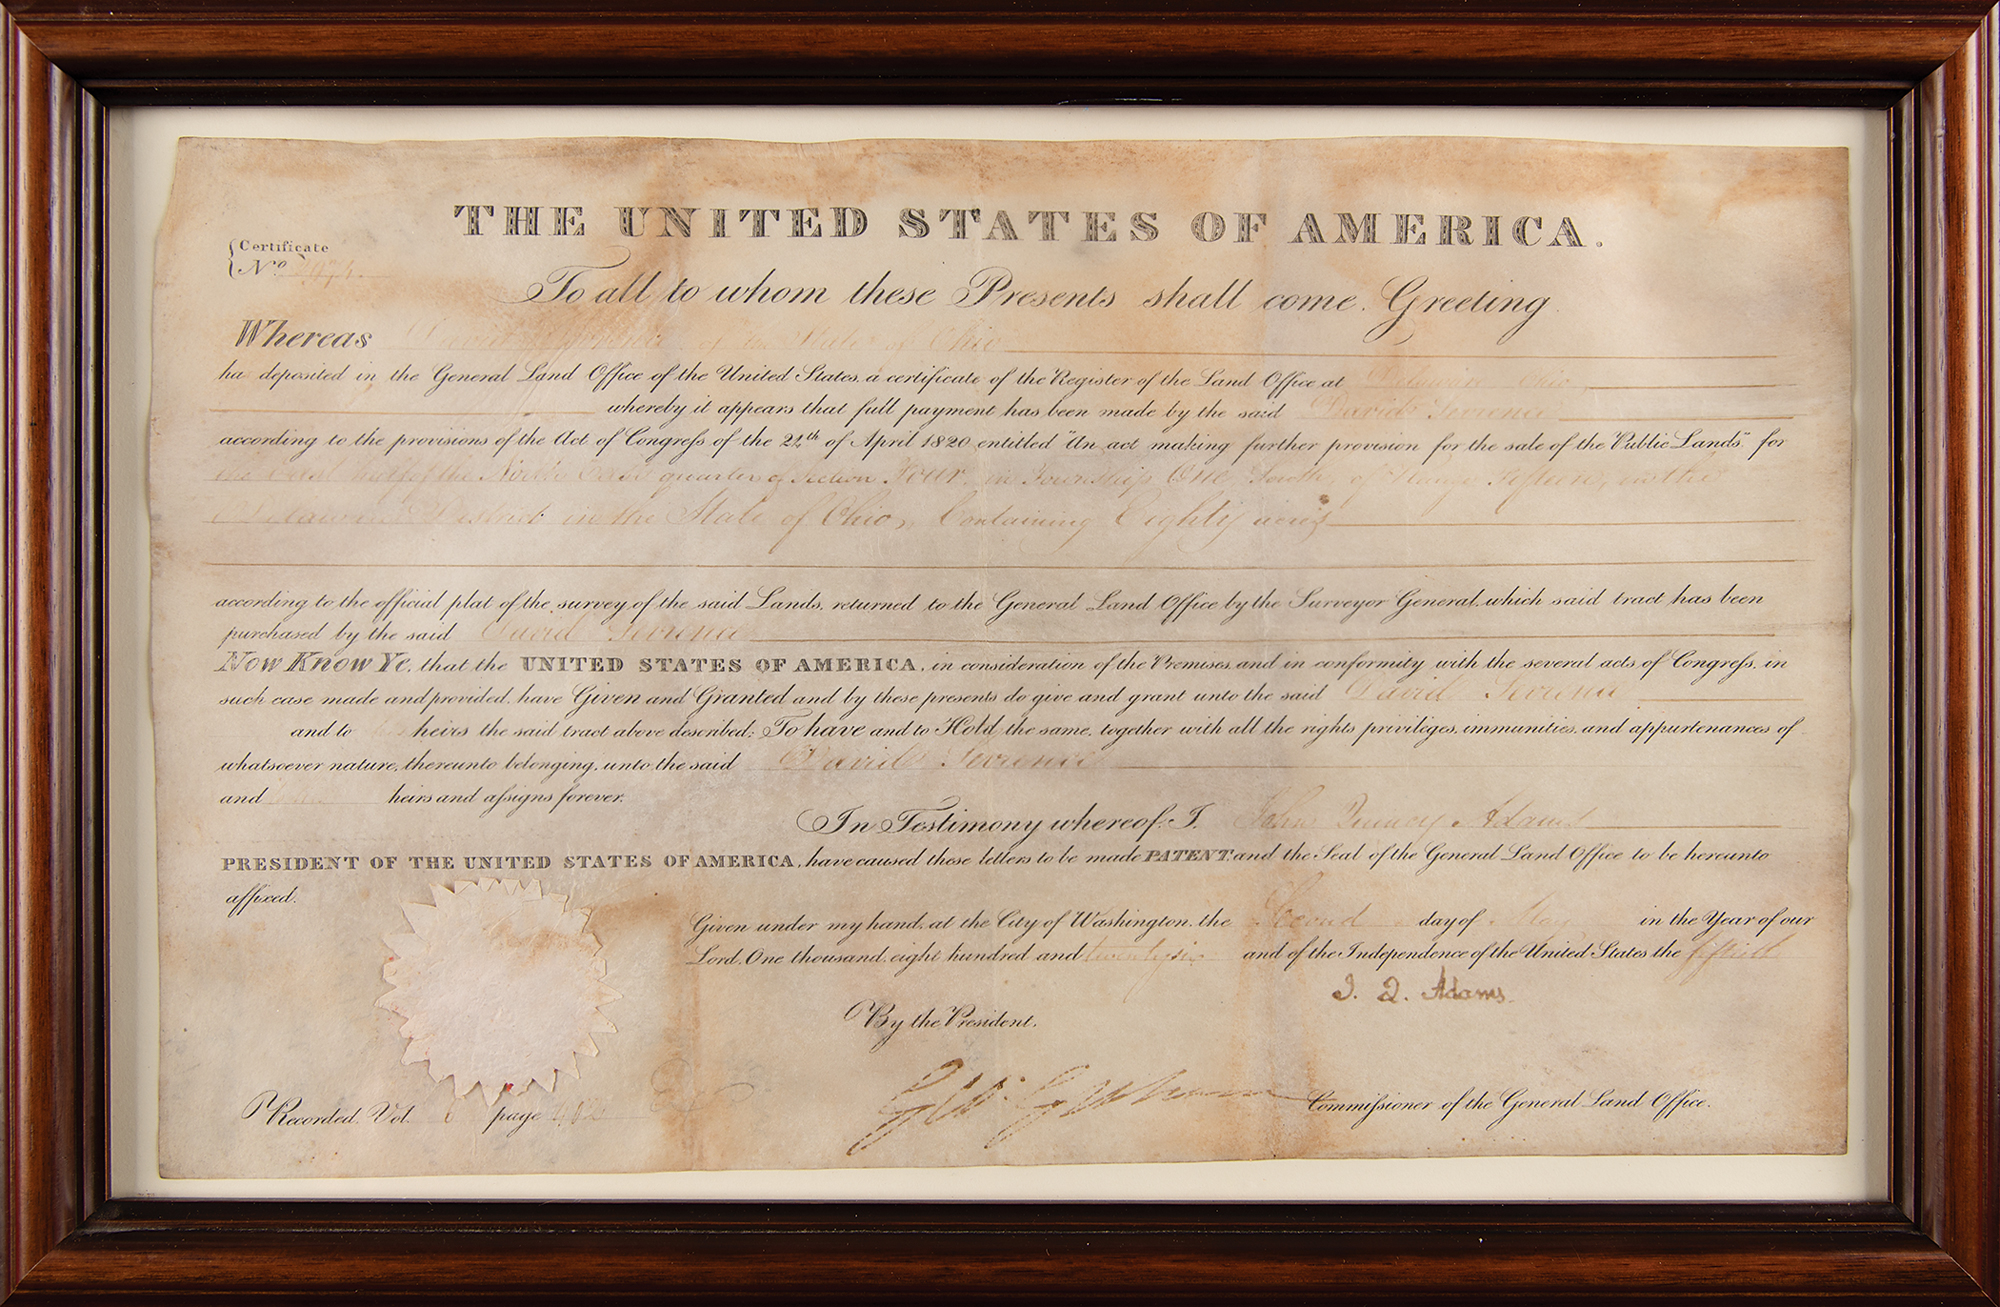 THE UNITED STATES OF AMERICA.
Certificate
No.
To all to whom these Presents shall come. Greeting
Whereas David of State of Ohio
ha deposited in the General Land Office of the United States, a certificate of the Register of the Land Office at Delaware Ohio
whereby it appears that full payment has been made by the said David
according to the provisions of the Act of Congress of the 24th of April 1820 entitled "An act making further provision for the sale of the Public Lands" for
the East half of the North East quarter of Section Four, in Township One South, of Range Fifteen, in the
Delaware District in the State of Ohio, Containing Eighty acres
according to the official plat of the survey of the said Lands, returned to the General Land Office by the Surveyor General, which said tract has been
purchased by the said David
Now Know Ye, that the UNITED STATES OF AMERICA, in consideration of the Premises, and in conformity with the several acts of Congress, in
such case made and provided, have Given and Granted and by these presents do give and grant unto the said David
and to his heirs the said tract above described; To have and to Hold the same, together with all the rights privileges, immunities, and appurtenances of
whatsoever nature, thereunto belonging, unto the said David
and heirs and assigns forever.
In Testimony whereof, I. John Quincy Adams
PRESIDENT OF THE UNITED STATES OF AMERICA, have caused these letters to be made PATENT and the Seal of the General Land Office to be hereunto
affixed.
Given under my hand, at the City of Washington, the Second day of May in the Year of our
Lord, One thousand, eight hundred and twenty six and of the Independence of the United States the fiftieth
J. Q. Adams
By the President.
Commissioner of the General Land Office.
Recorded, Vol. 6 page